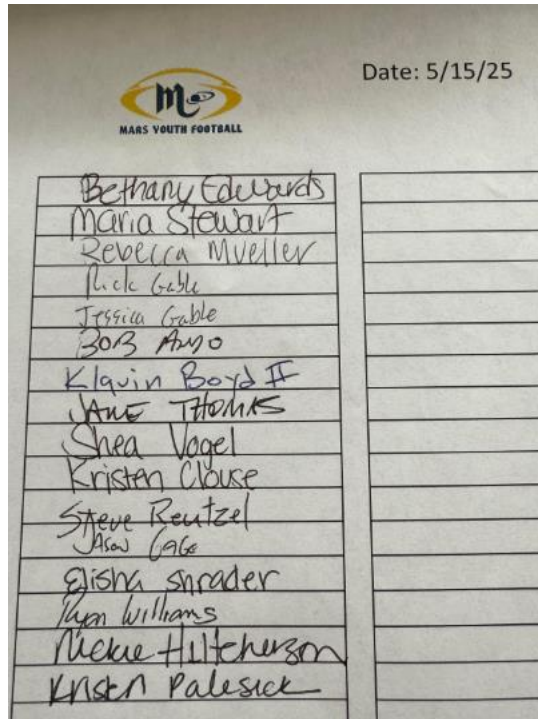 Date: 5/15/25
M
MARS YOUTH FOOTBALL
Bethany Edwards
Maria Stewart
Rebecca Mueller
Rick Gable
Jessica Gable
BOB
Klavin Boyd II
JANE THOMAS
Shea Vogel
Kristen Clouse
Steve Reutzel
Jason
Elisha Shrader
Ryan Williams
Nickie Hutcherson
Kristen Palesick